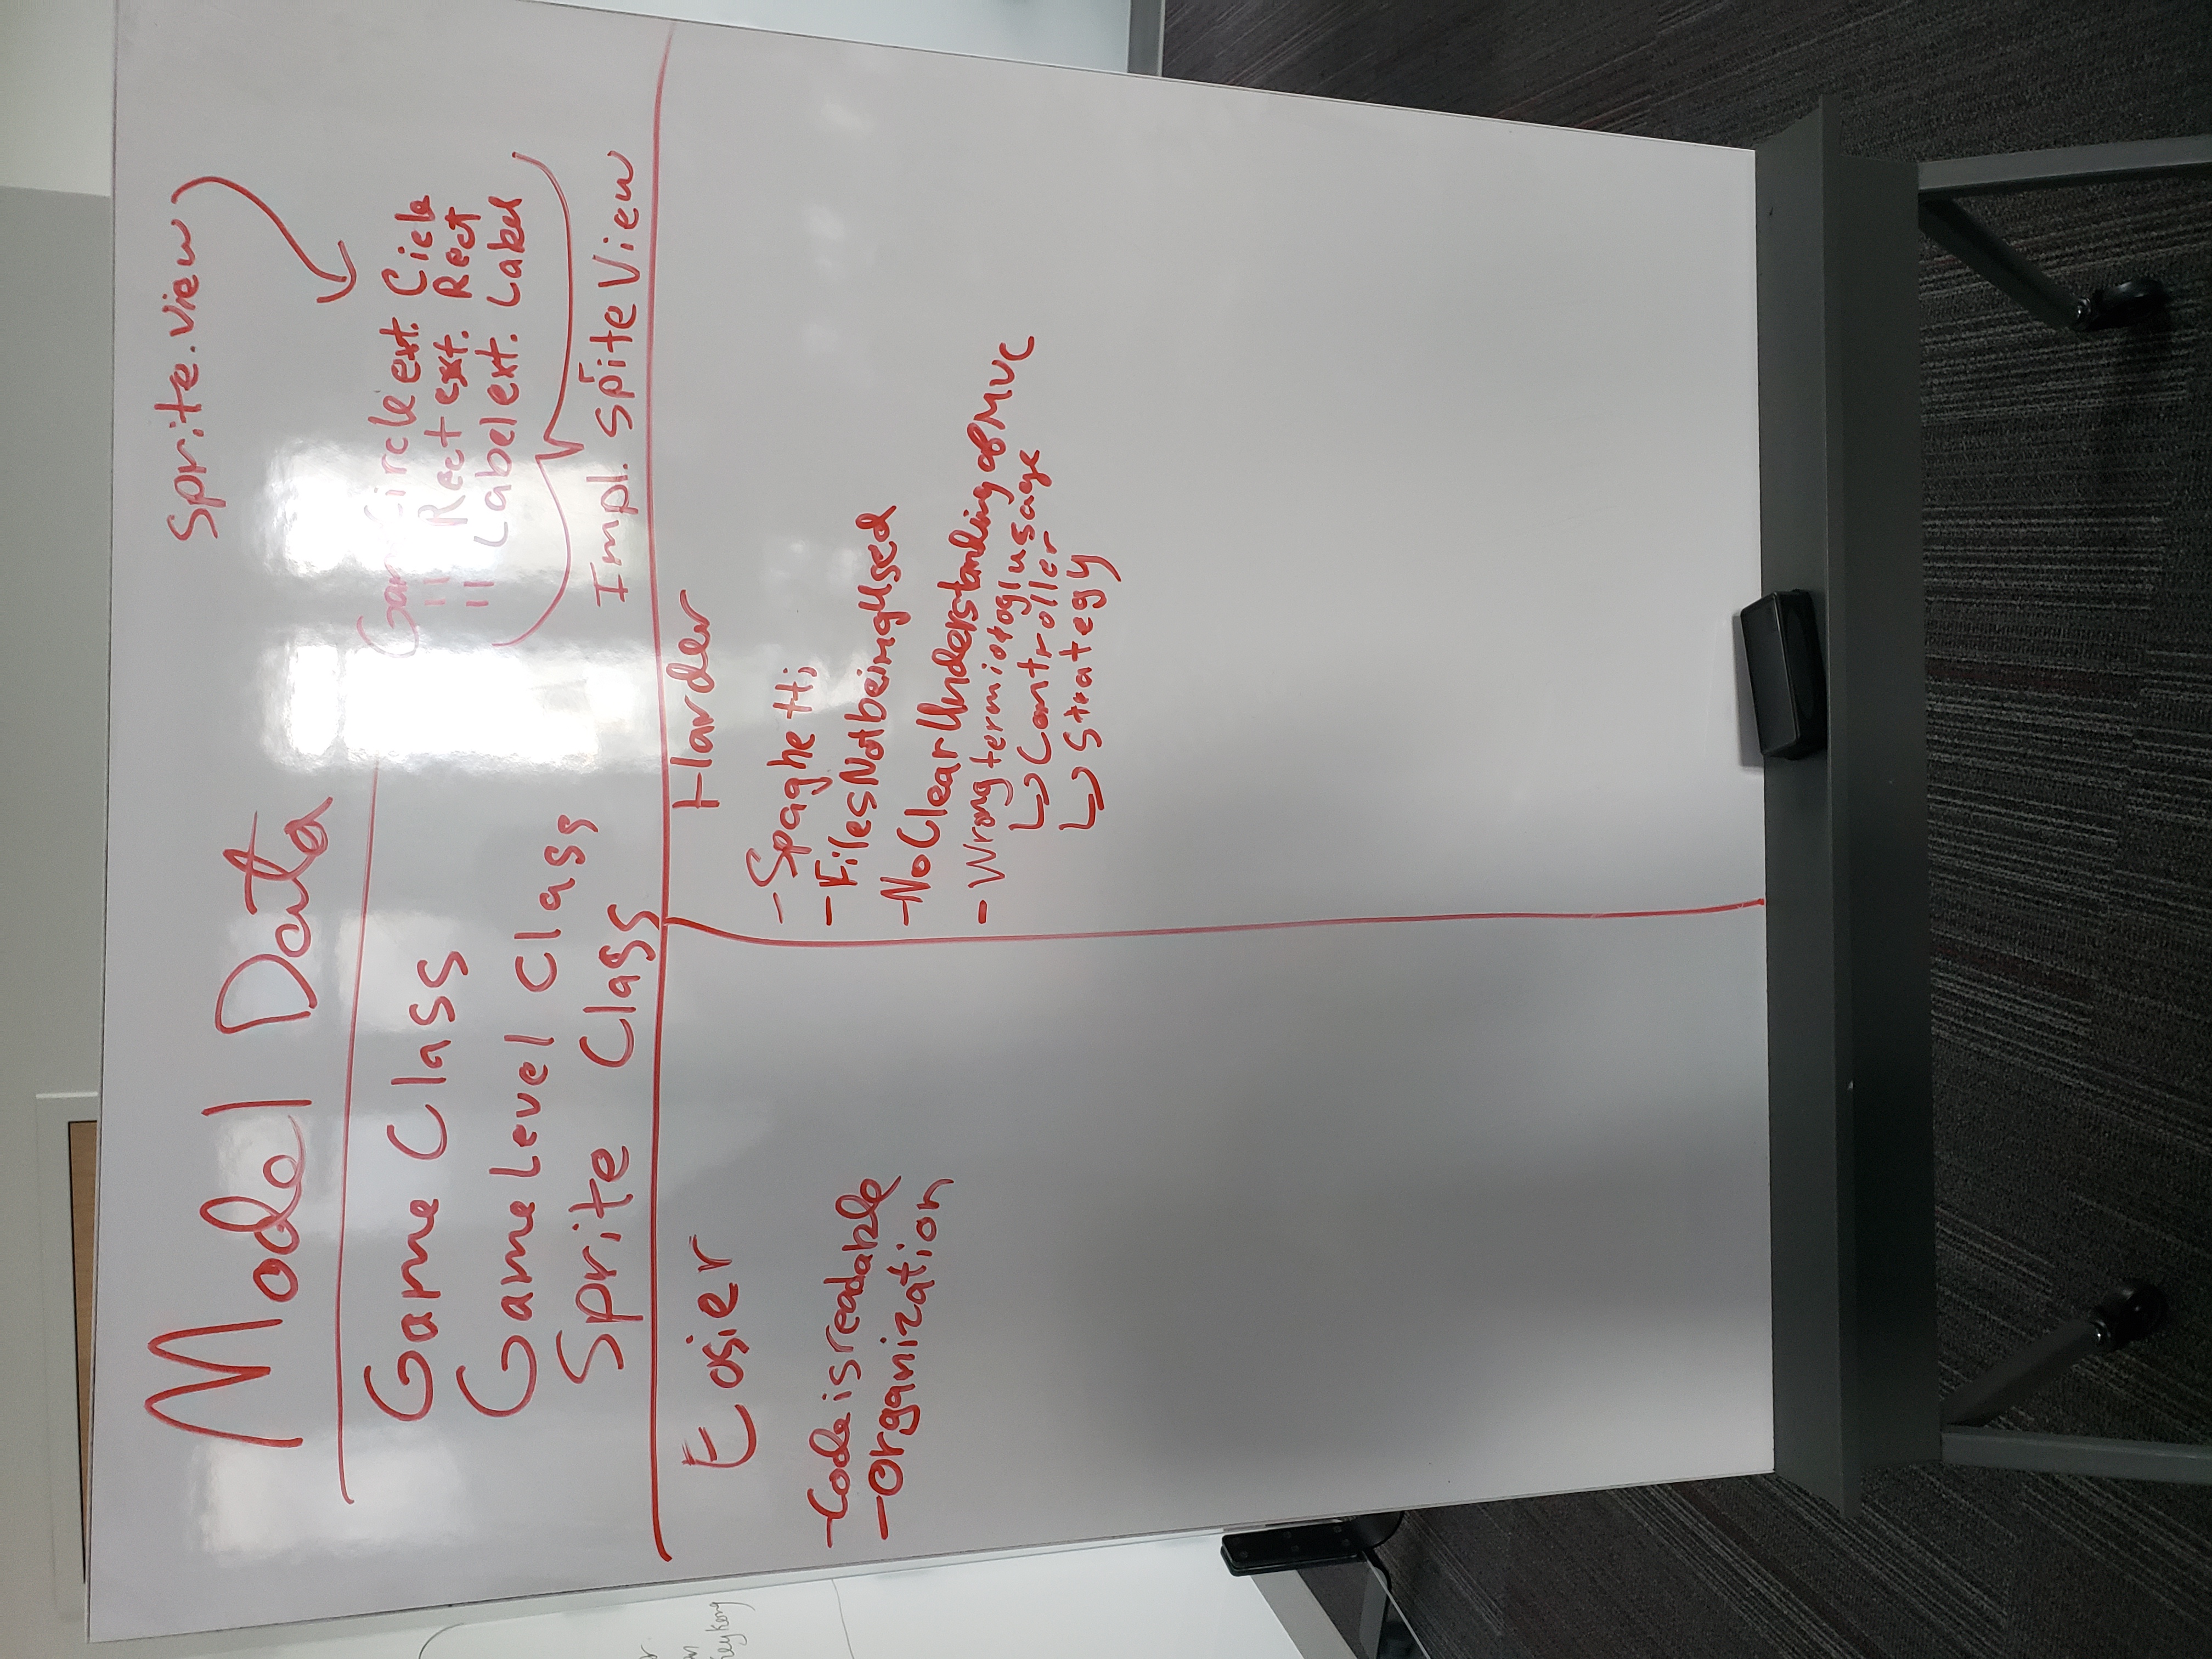 Model Data
Game Class
Game Level Class
Sprite Class
sprite.view
Gam Circle ext. Cicle
" Rect ext. Rect
" Label ext. Label
Impl. SpriteView
Easier
-Code is readable
-Organization
Harder
-Spaghetti
-Files Not being Used
-No Clear Understanding of MVC
- Wrong termiotogl usage
↳ Controller
↳ Strategy